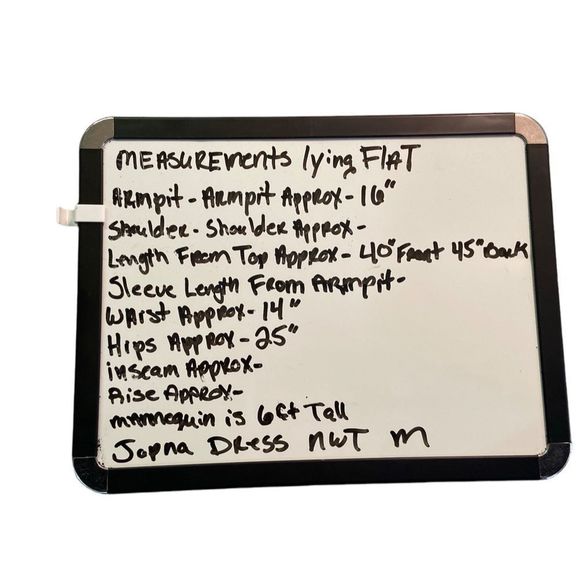 MEASUREMENTS lying FLAT
ARMpit - ARMpit Approx - 16"
Shoulder - Shoulder Approx -
Length From Top Approx - 40" Front 45" Back
Sleeve Length From ARMpit -
WAist Approx - 14"
Hips Approx - 25"
inseam Approx -
Rise Approx -
mannequin is 6ft Tall
Jopna Dress NWT M